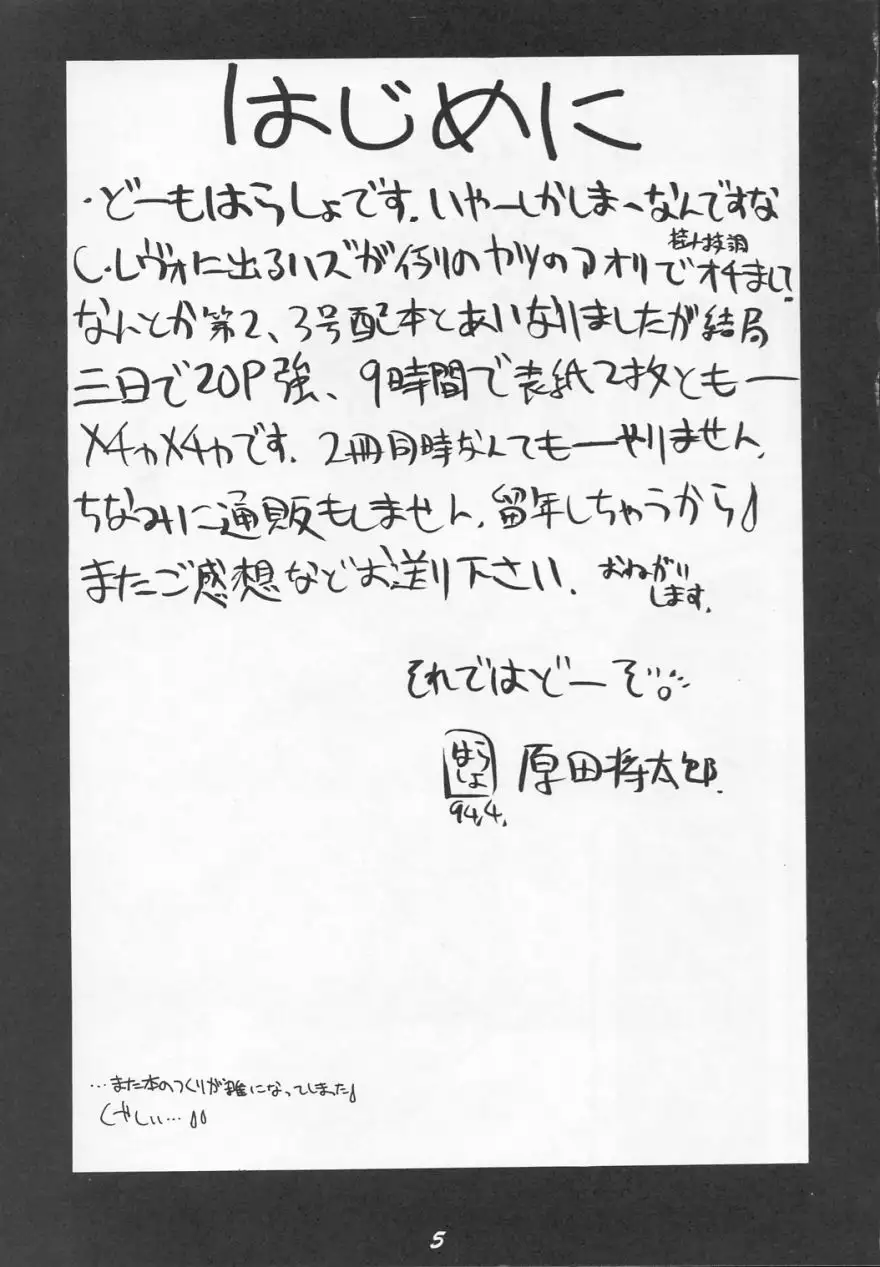 はじめに
・どーもはらしょです。いやーしかしまーなんですな
C・レヴォに出るハズが例のヤツのアオリでオチまして
なんとか第2、3号配本とあいなりましたが結局
三日で20P強、9時間で表紙2枚ともー
メチャメチャです。2冊同時なんてもーやりません。
ちなみに通販もしません。留年しちゃうから♪
またご感想などお送り下さい。おねがい
します。
それではどーぞ
はらしょ 原田将太郎.
94,4,
…また本のつくりが雑になってしまった♪
くやしい…♪♪
5